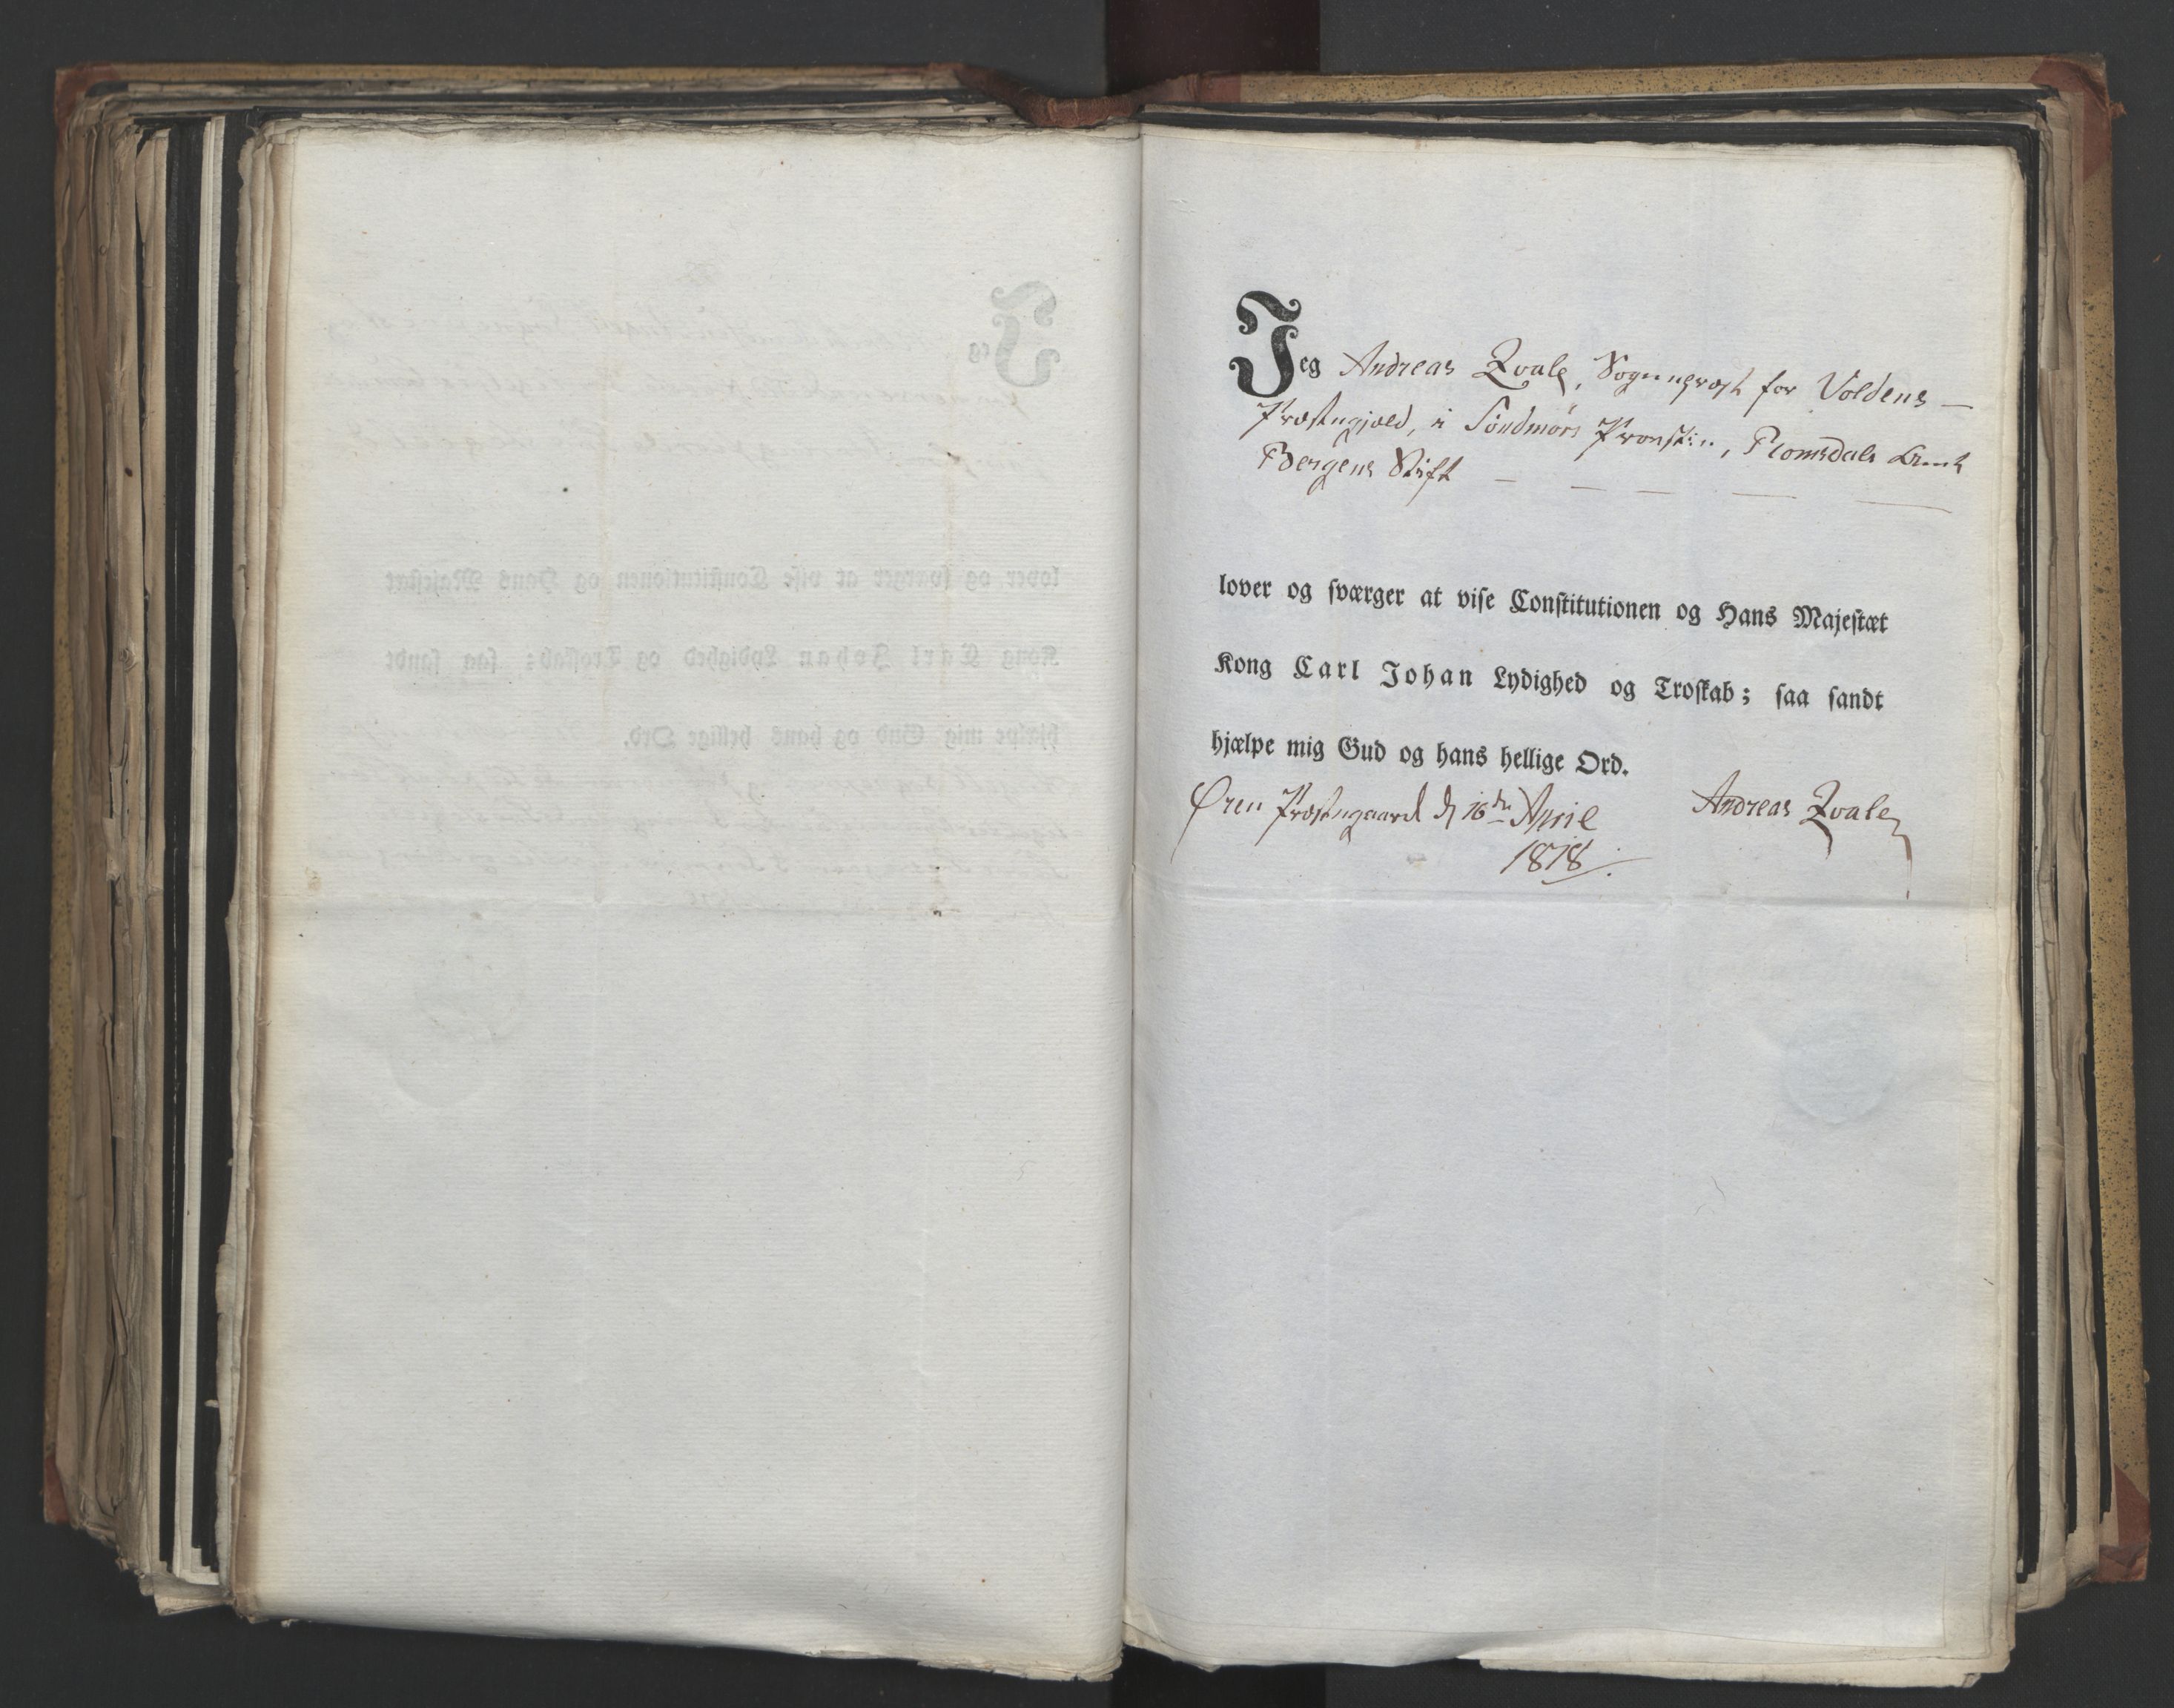 Jeg Andreas Qvale, Sognepræst for Voldens —
Præstegjæld, i Søndmørs Provstie, Romsdals Amt
Bergens Stift — — — — —
lover og sværger at vise Constitutionen og Hans Majestæt
Kong Carl Johan Lydighed og Troskab; saa sandt
hjælpe mig Gud og hans hellige Ord.
Øren Præstegaard d 16de April Andreas Qvale
1818.